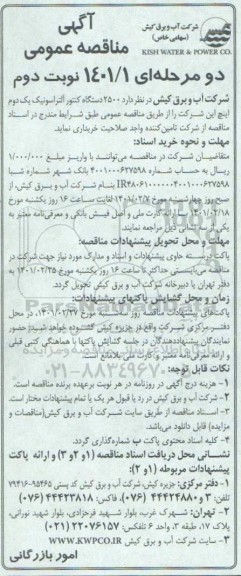 شرکت آب و برق کیش
(سهامی خاص)
KISH WATER & POWER CO.
آگهی
مناقصه عمومی
دو مرحله‌ای ۱۴۰۱/۱ نوبت دوم
شرکت آب و برق کیش در نظر دارد ۲۵۰۰ دستگاه کنتور آلتراسونیک یک دوم
اینچ این شرکت را از طریق مناقصه عمومی طبق شرایط مندرج در اسناد
مناقصه از شرکت تامین کننده واجد صلاحیت خریداری نماید.
مهلت و نحوه خرید اسناد:
متقاضیان شرکت در مناقصه می‌توانند با واریز مبلغ ۱/۰۰۰/۰۰۰
ریال به حساب شماره ۴۰۰۱۰۰۰۶۲۷۵۹۸ بانک شهر شماره شبا
بنام شرکت آب و برق کیش، از
صبح روز چهارشنبه مورخ ۱۴۰۱/۰۲/۰۷ لغایت ساعت ۱۶ روز یکشنبه مورخ
۱۴۰۱/۰۲/۱۸ با ارائه کارت ملی و اصل فیش بانکی و معرفی‌نامه معتبر به
یکی از نشانی ذیل مراجعه نمایند.
مهلت و محل تحویل پیشنهادات مناقصه:
پاکت در بسته حاوی پیشنهادات و اسناد و مدارک مورد نیاز جهت شرکت در
مناقصه می‌بایستی حداکثر تا ساعت ۱۶ روز یکشنبه مورخ ۱۴۰۱/۰۲/۲۵ به
دفتر تهران یا دبیرخانه شرکت آب و برق کیش تحویل گردد.
زمان و محل گشایش پاکتهای پیشنهادات:
پاکت‌های پیشنهادات مناقصه روز سه‌شنبه مورخ ۱۴۰۱/۰۲/۲۷، در محل
دفتر مرکزی شرکت واقع در جزیره کیش گشوده خواهد شد؛ حضور
نمایندگان پیشنهاددهندگان در جلسه گشایش پاکتها با هماهنگی کتبی قبلی
و ارائه معرفی‌نامه معتبر و کارت ملی بلامانع است.
نکات قابل توجه:
۱- هزینه درج آگهی در روزنامه در هر نوبت برعهده برنده مناقصه است.
۲- شرکت آب و برق کیش در رد یا قبول هر یک یا تمام پیشنهادات مختار است.
۳- اسناد مناقصه از طریق سایت شرکت آب و برق کیش(مناقصات و
مزایده) قابل دانلود می‌باشد.
۴- کلیه اسناد محتوی پاکت ب شماره‌گذاری گردد.
نشانی محل دریافت اسناد مناقصه (۱و ۲و ۳) و ارائه پاکت
پیشنهادات مربوطه (۱و ۲):
۱- (دفتر مرکزی): جزیره کیش، شرکت آب و برق کیش کد پستی ۹۵۴۶۵-۷۹۴۱۶
تلفن: ۳ و ۴۴۴۲۴۸۸۰ (۰۷۶)، فاکس: ۴۴۴۲۳۸۱۸ (۰۷۶)
۲- تهران: شهرک غرب، بلوار شهید فرحزادی، بلوار شهید نورانی،
پلاک ۱۷، طبقه ۳، واحد ۶ تلفکس: ۲۲۰۷۶۱۵۷ (۰۲۱)
۳- سایت شرکت آب و برق کیش WWW.KWPCO.IR
امور بازرگانی
۰۲۱-۸۸۳۴۹۶۷۰